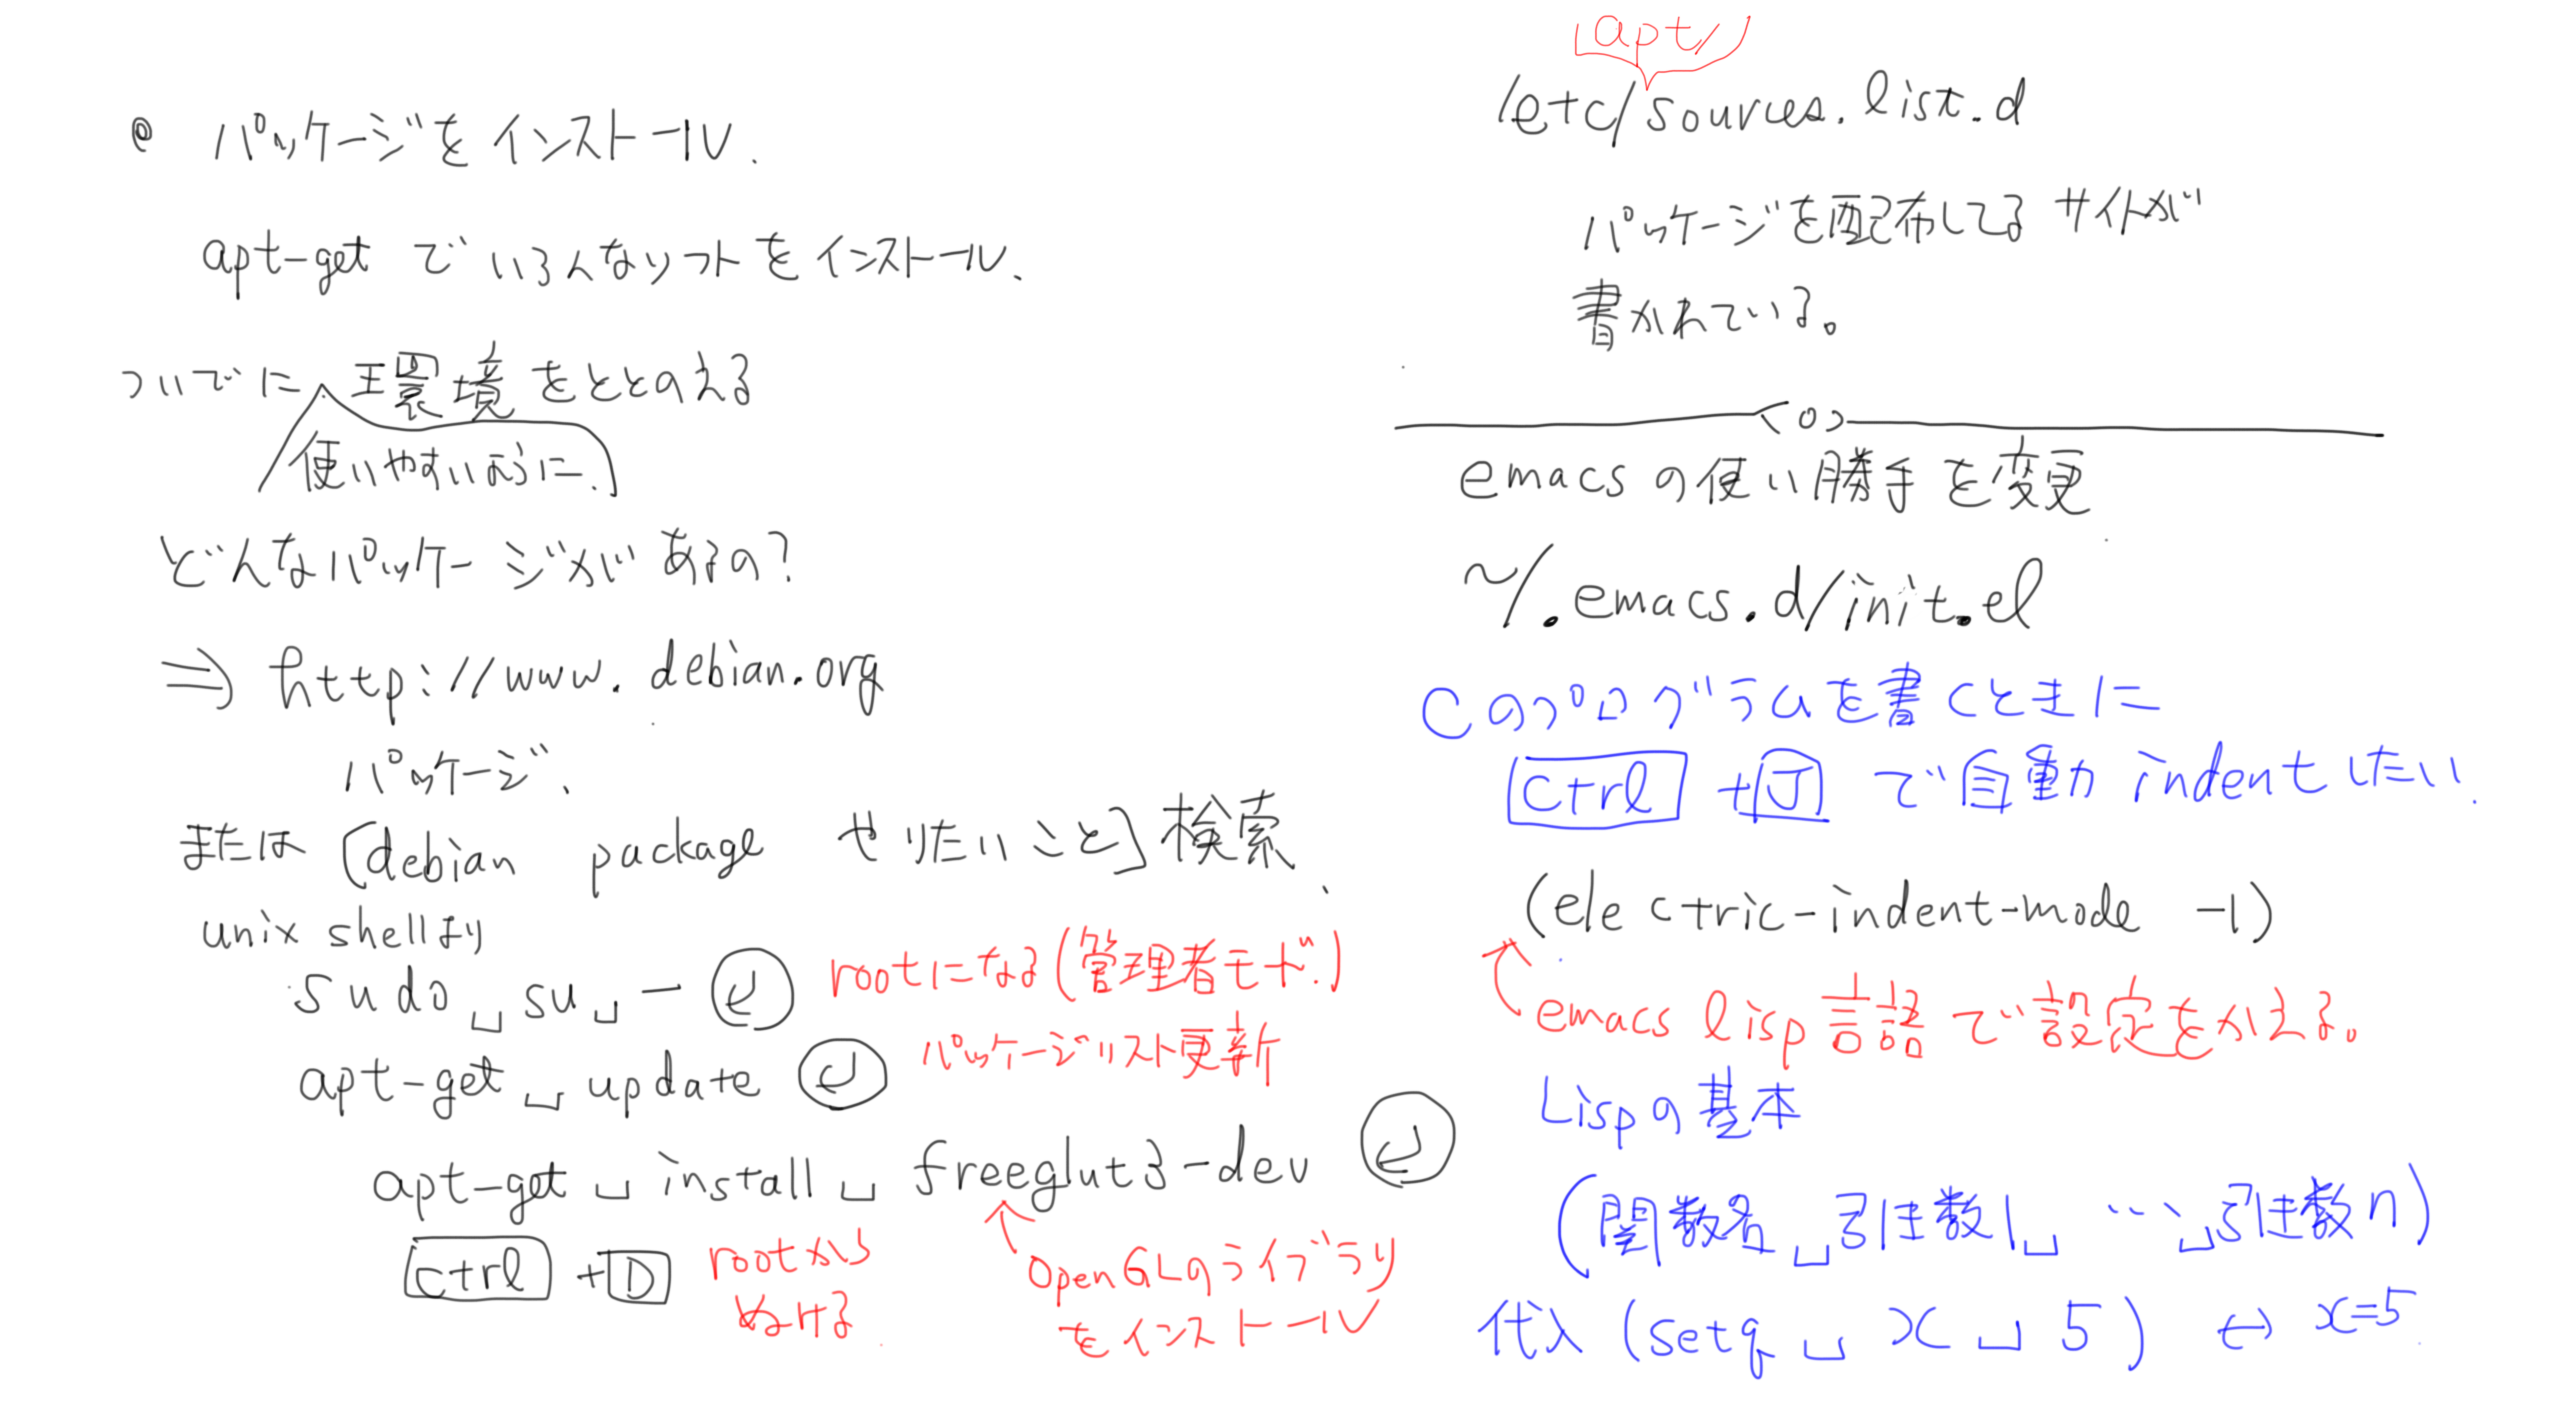 ◎ パッケージをインストール.
apt-get でいろんなソフトをインストール.
ついでに 環境をととのえる
使いやすいように.
どんなパッケージがあるの?
⇒ http://www.debian.org
パッケージ.
または [debian package やりたいこと] 検索.
unix shellより
sudo␣su␣- ↵ rootになる(管理者モード.)
apt-get␣update ↵ パッケージリスト更新
apt-get␣install␣freeglut3-dev ↵
ctrl + D rootから
ぬける
↑ OpenGLのライブラリ
をインストール
apt/
/etc/sources.list.d
パッケージを配布してるサイトが
書かれている。
emacsの使い勝手を変更
~/.emacs.d/init.el
Cのプログラムを書くときに
ctrl + J で自動indentしたい.
(electric-indent-mode -1)
emacs lisp言語で設定をかえる。
Lispの基本
(関数名␣引き数1␣ … ␣引き数n)
代入 (setq␣x␣5) ↔ x=5